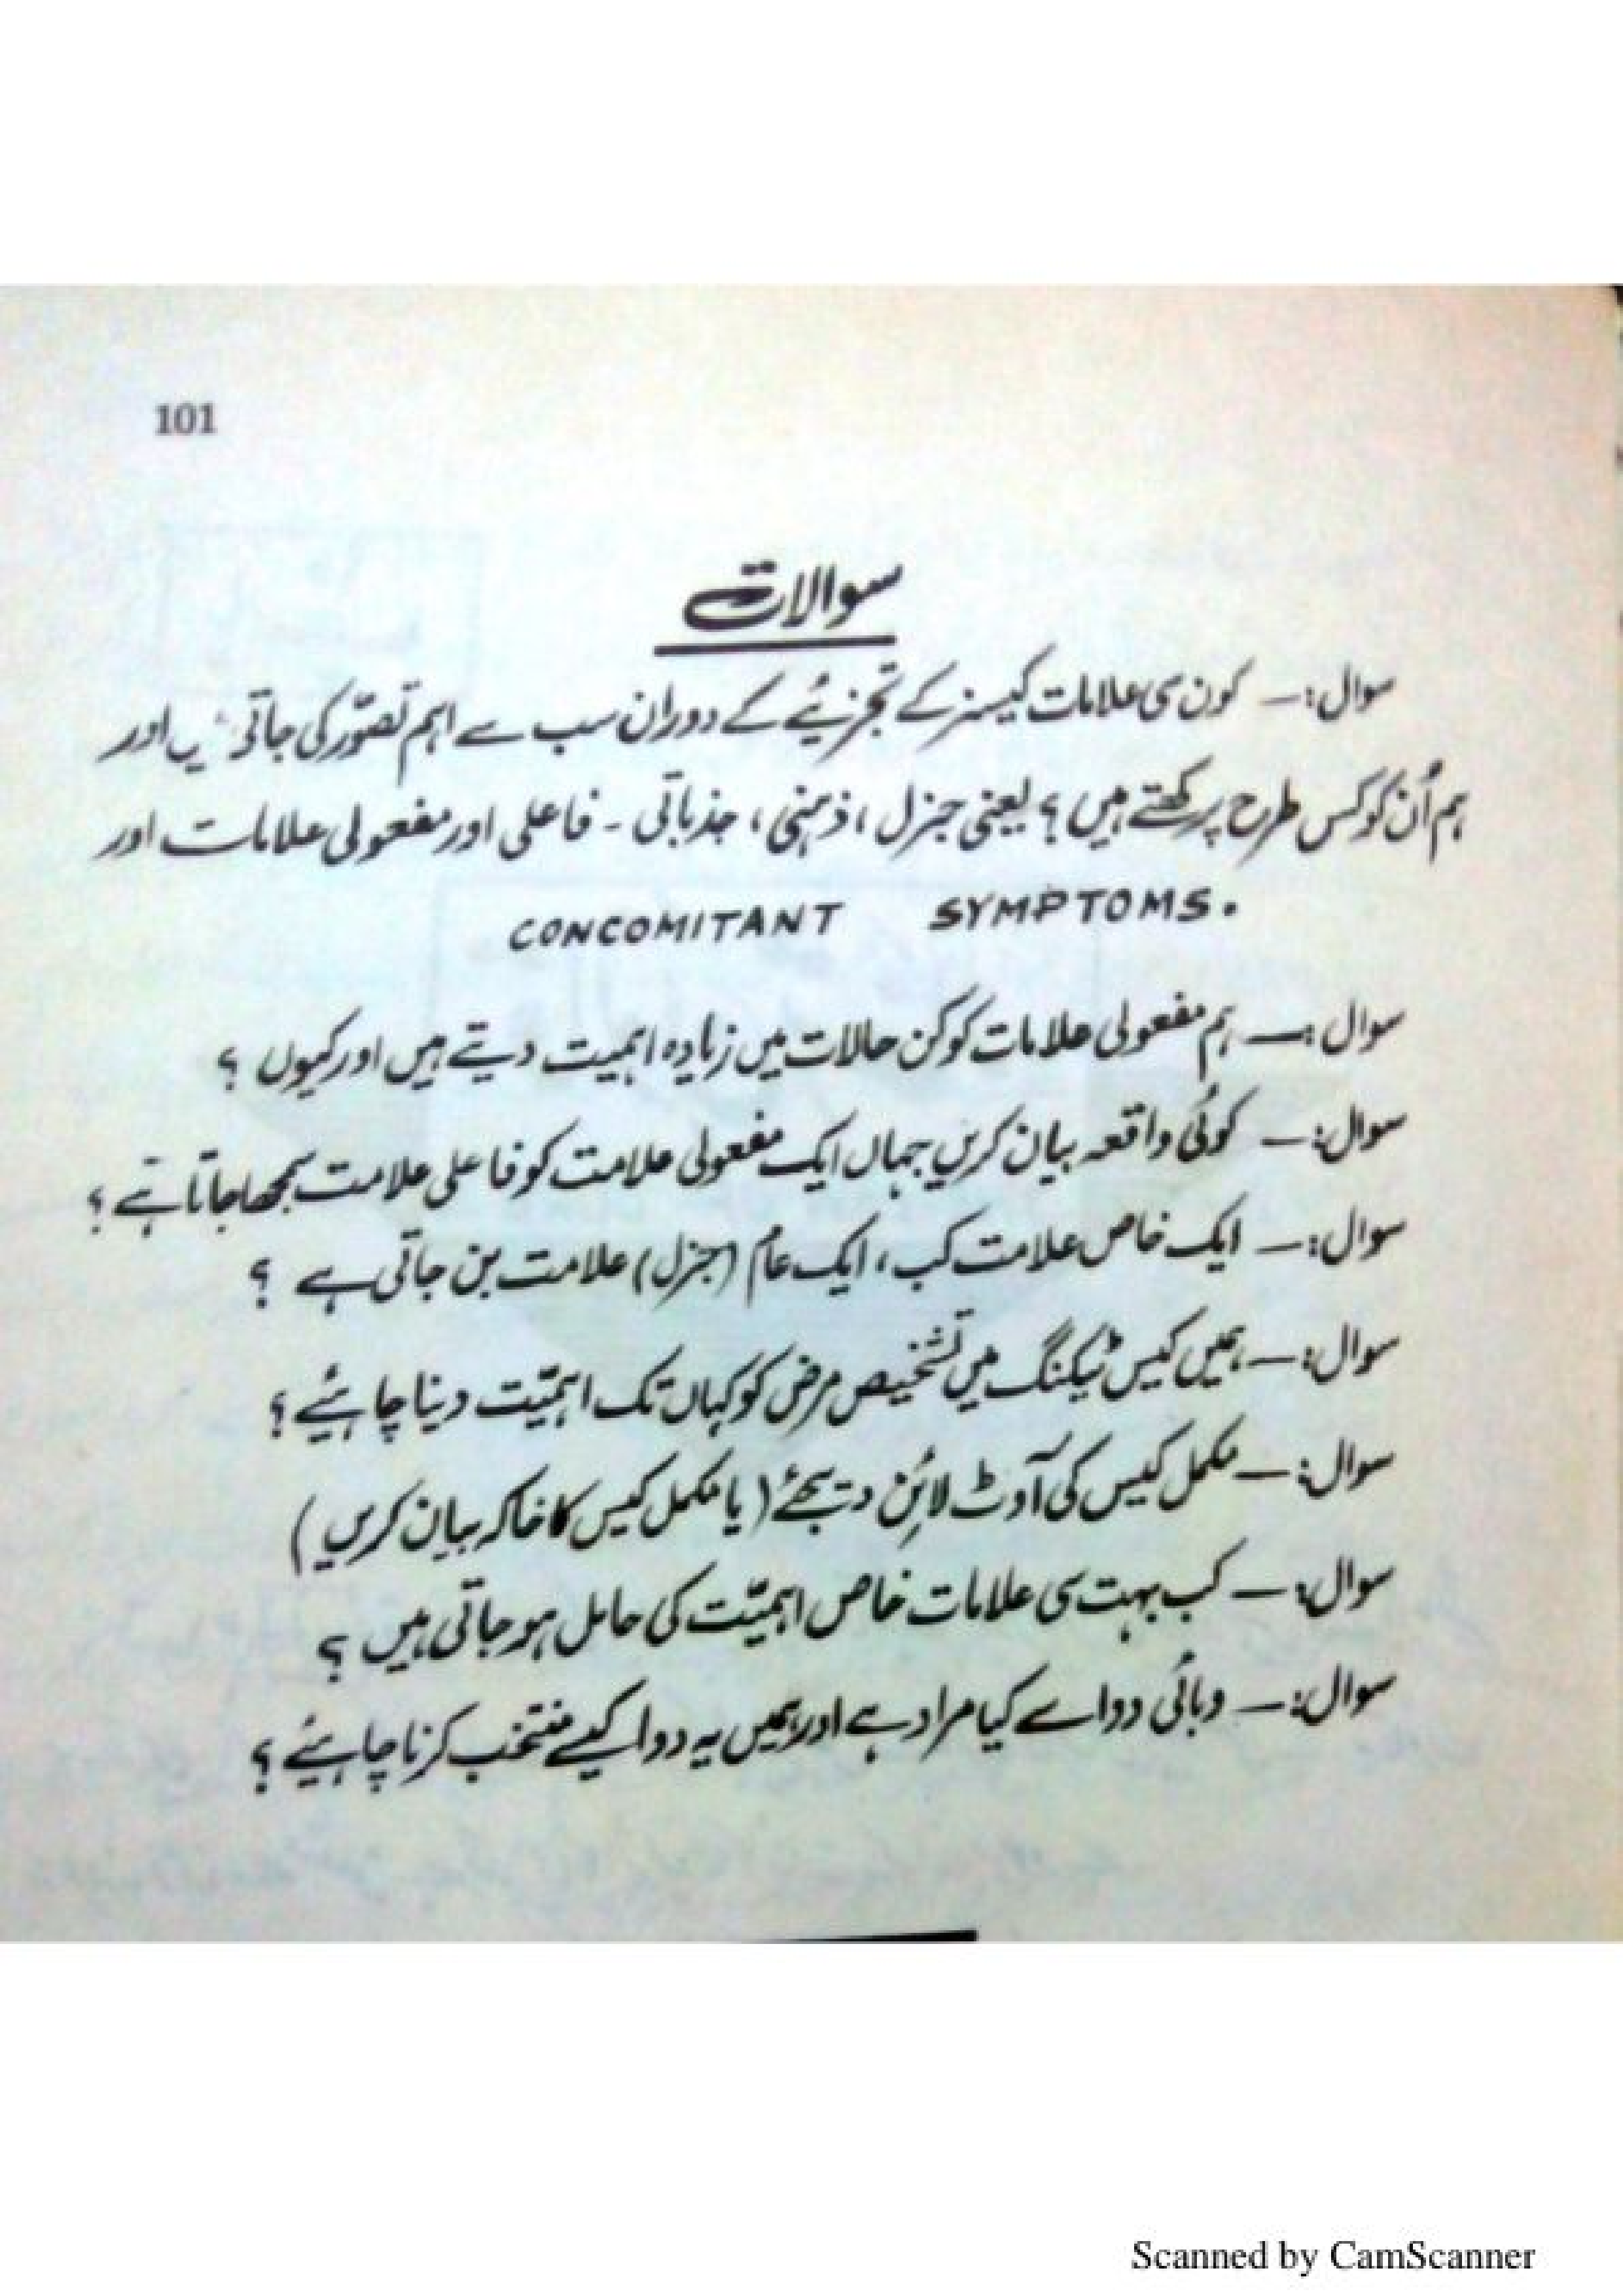 101
سوالات
سوال:۔ کون سی علامات کیسز کے تجزیئے کے دوران سب سے اہم تصوّر کی جاتی ہیں اور
ہم اُن کو کس طرح پرکھتے ہیں؟ یعنی جنرل، ذہنی، جذباتی۔ فاعلی اور مفعولی علامات اور
CONCOMITANT SYMPTOMS.
سوال:۔ ہم مفعولی علامات کو کن حالات میں زیادہ اہمیت دیتے ہیں اور کیوں؟
سوال:۔ کوئی واقعہ بیان کریں جہاں ایک مفعولی علامت کو فاعلی علامت سمجھا جاتا ہے؟
سوال:۔ ایک خاص علامت کب، ایک عام (جنرل) علامت بن جاتی ہے؟
سوال:۔ ہمیں کیس ٹیکنگ میں تشخیص مرض کو کہاں تک اہمیّت دینا چاہئیے؟
سوال:۔ مکمل کیس کی آوٹ لائن دیجئے (یا مکمل کیس کا خاکہ بیان کریں)
سوال:۔ کب بہت سی علامات خاص اہمیّت کی حامل ہو جاتی ہیں؟
سوال:۔ وبائی دوا سے کیا مراد ہے اور ہمیں یہ دوا کیسے منتخب کرنا چاہئیے؟
Scanned by CamScanner